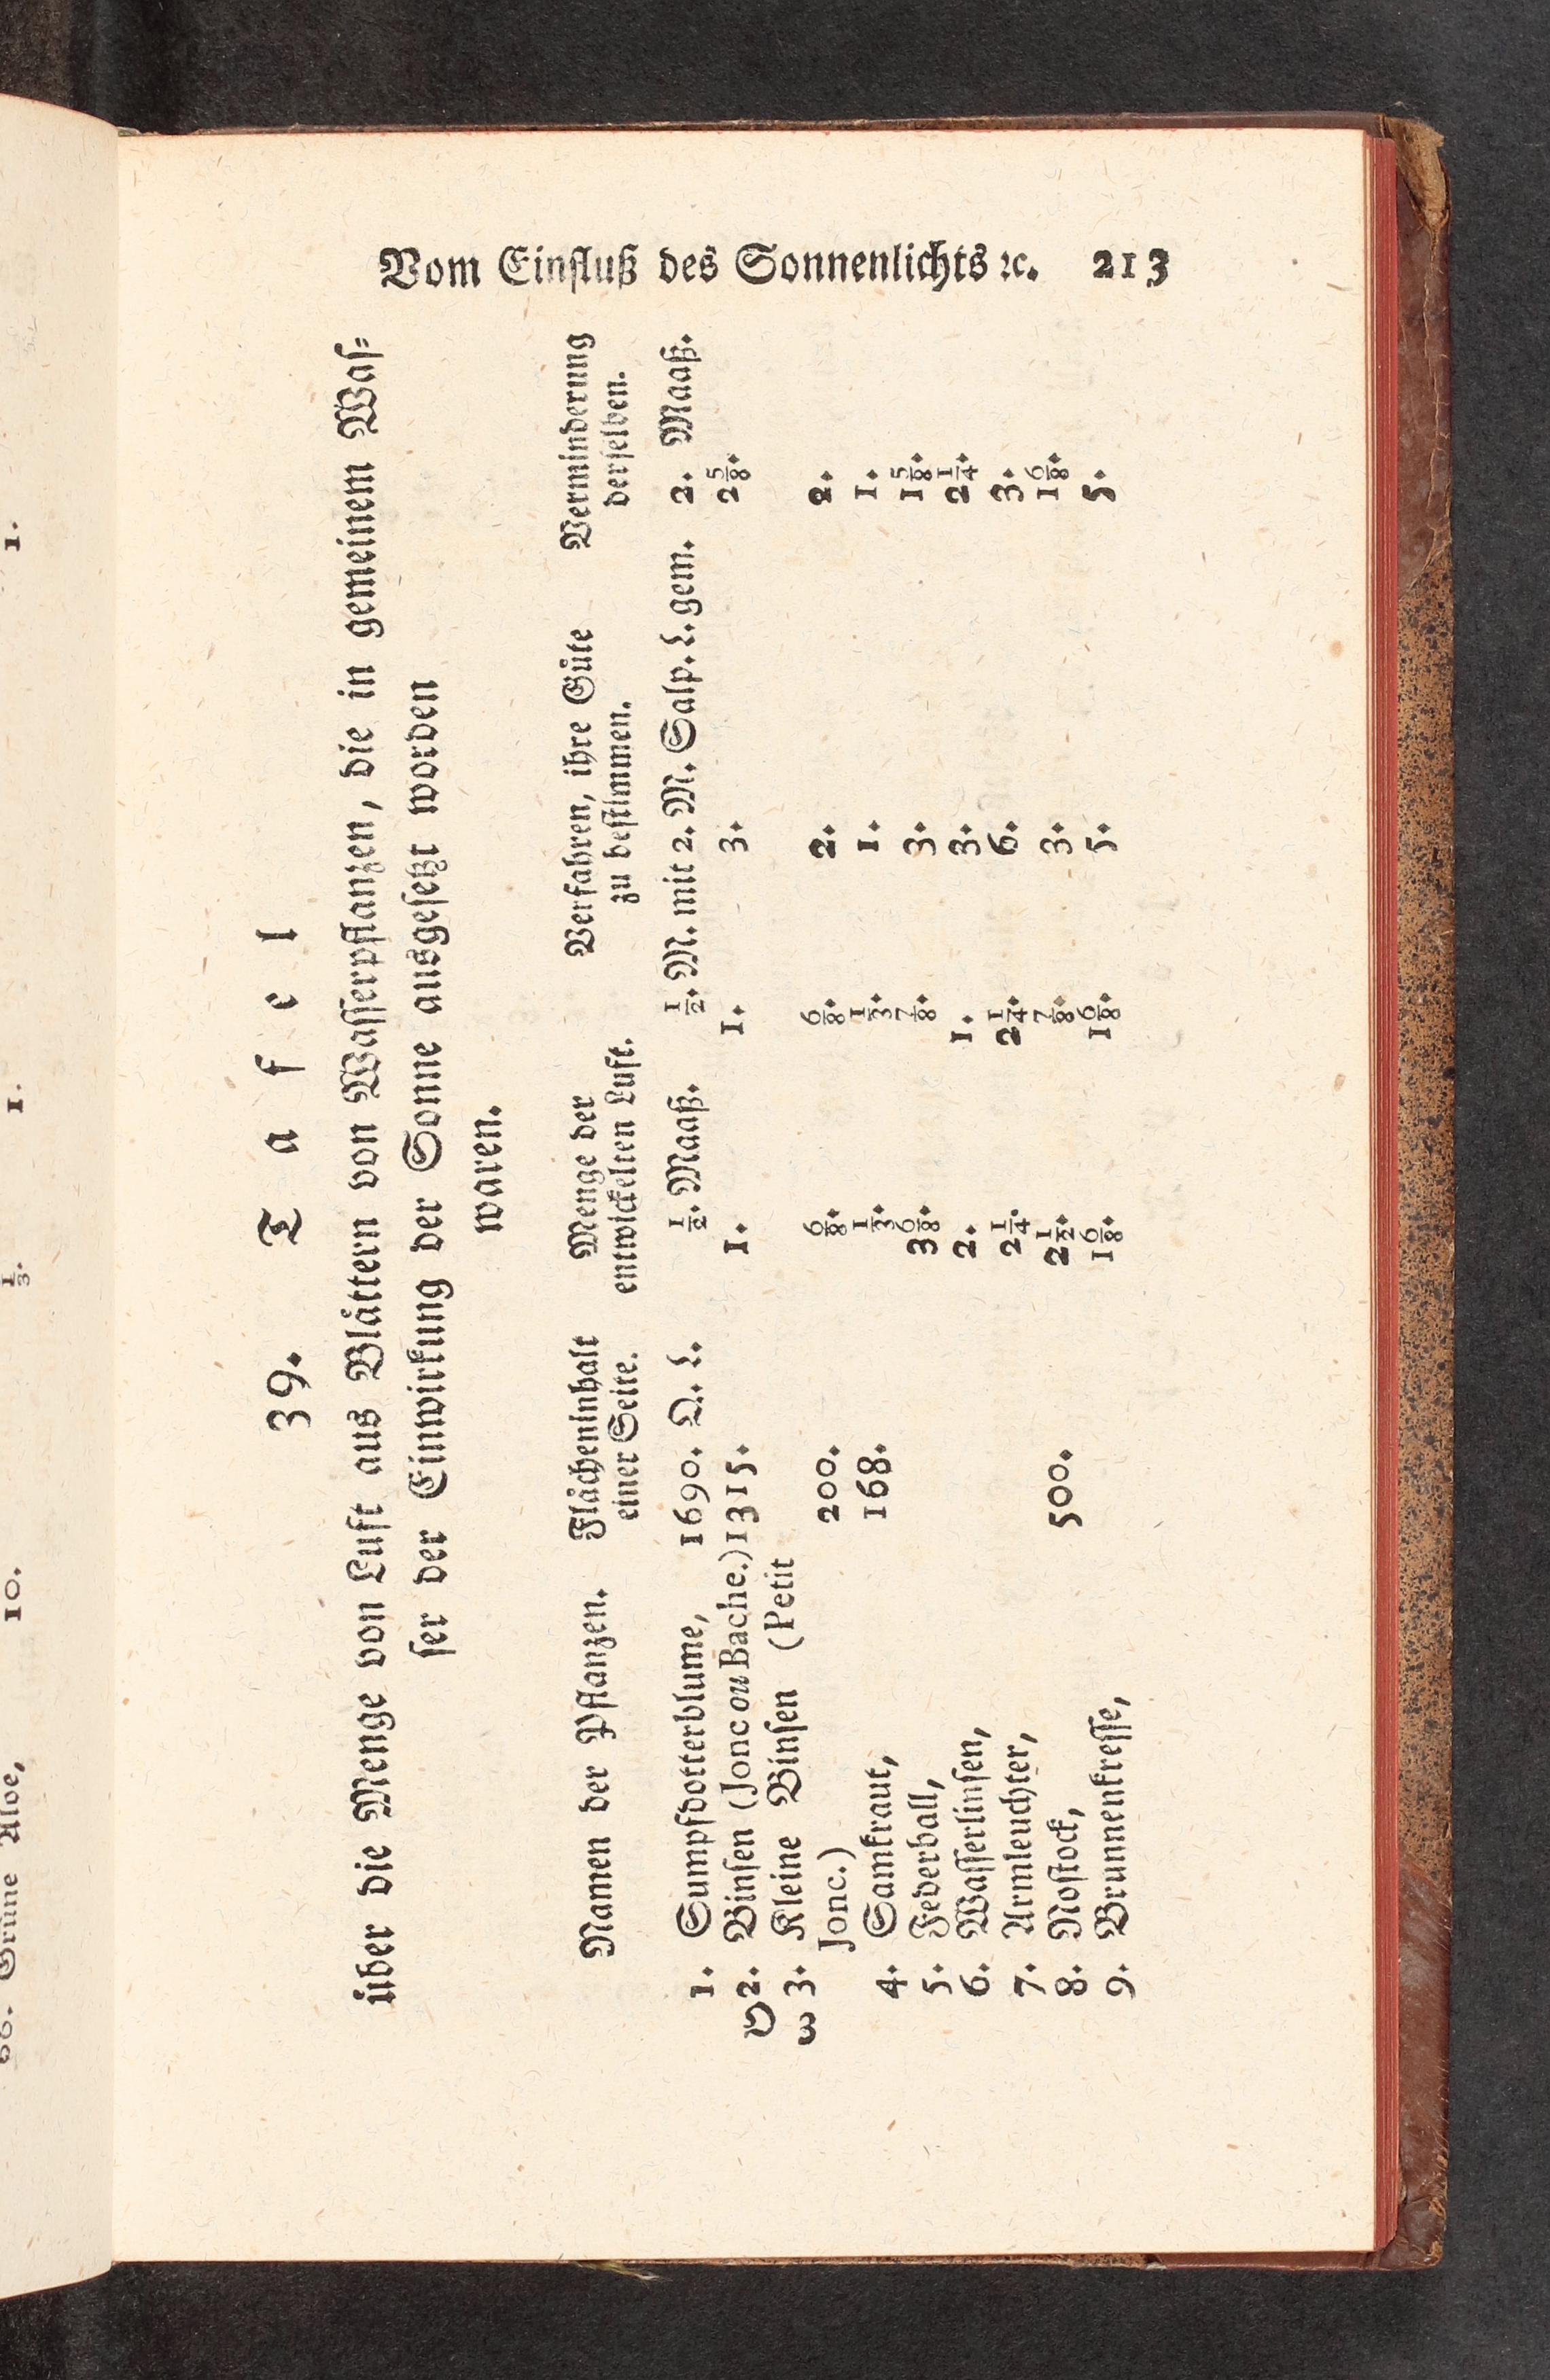 Vom Einfluß des Sonnenlichts ꝛc. 213
39. Tafel
über die Menge von Luft aus Blättern von Wasserpflanzen, die in gemeinem Was⸗
ser der Einwirkung der Sonne ausgesetzt worden
waren.
Namen der Pflanzen. Flächeninhalt einer Seite. Menge der entwickelten Luft. Verfahren, ihre Güte zu bestimmen. Verminderung derselben.
1. Sumpfdotterblume, 1690. Q. L. ½. Maaß. ½. M. mit 2. M. Salp. L. gem. 2. Maaß.
2. Binsen (Jonc ou Bache.) 1315. 1. 1. 3. 2⅝.
3. Kleine Binsen (Petit
Jonc.) 200. 6/8. 6/8. 2. 2.
4. Samkraut, 168. ⅓. ⅓. 1. 1.
5. Federball, 3 6/8. ⅞. 3. 1⅝.
6. Wasserlinsen, 2. 1. 3. 2¼.
7. Armleuchter, 2¼. 2¼. 6. 3.
8. Nostock, 500. 2½. ⅞. 3. 1 6/8.
9. Brunnenkresse, 1 6/8. 1 6/8. 5. 5.
1.
1.
⅓.
10.
Grüne Aloe,